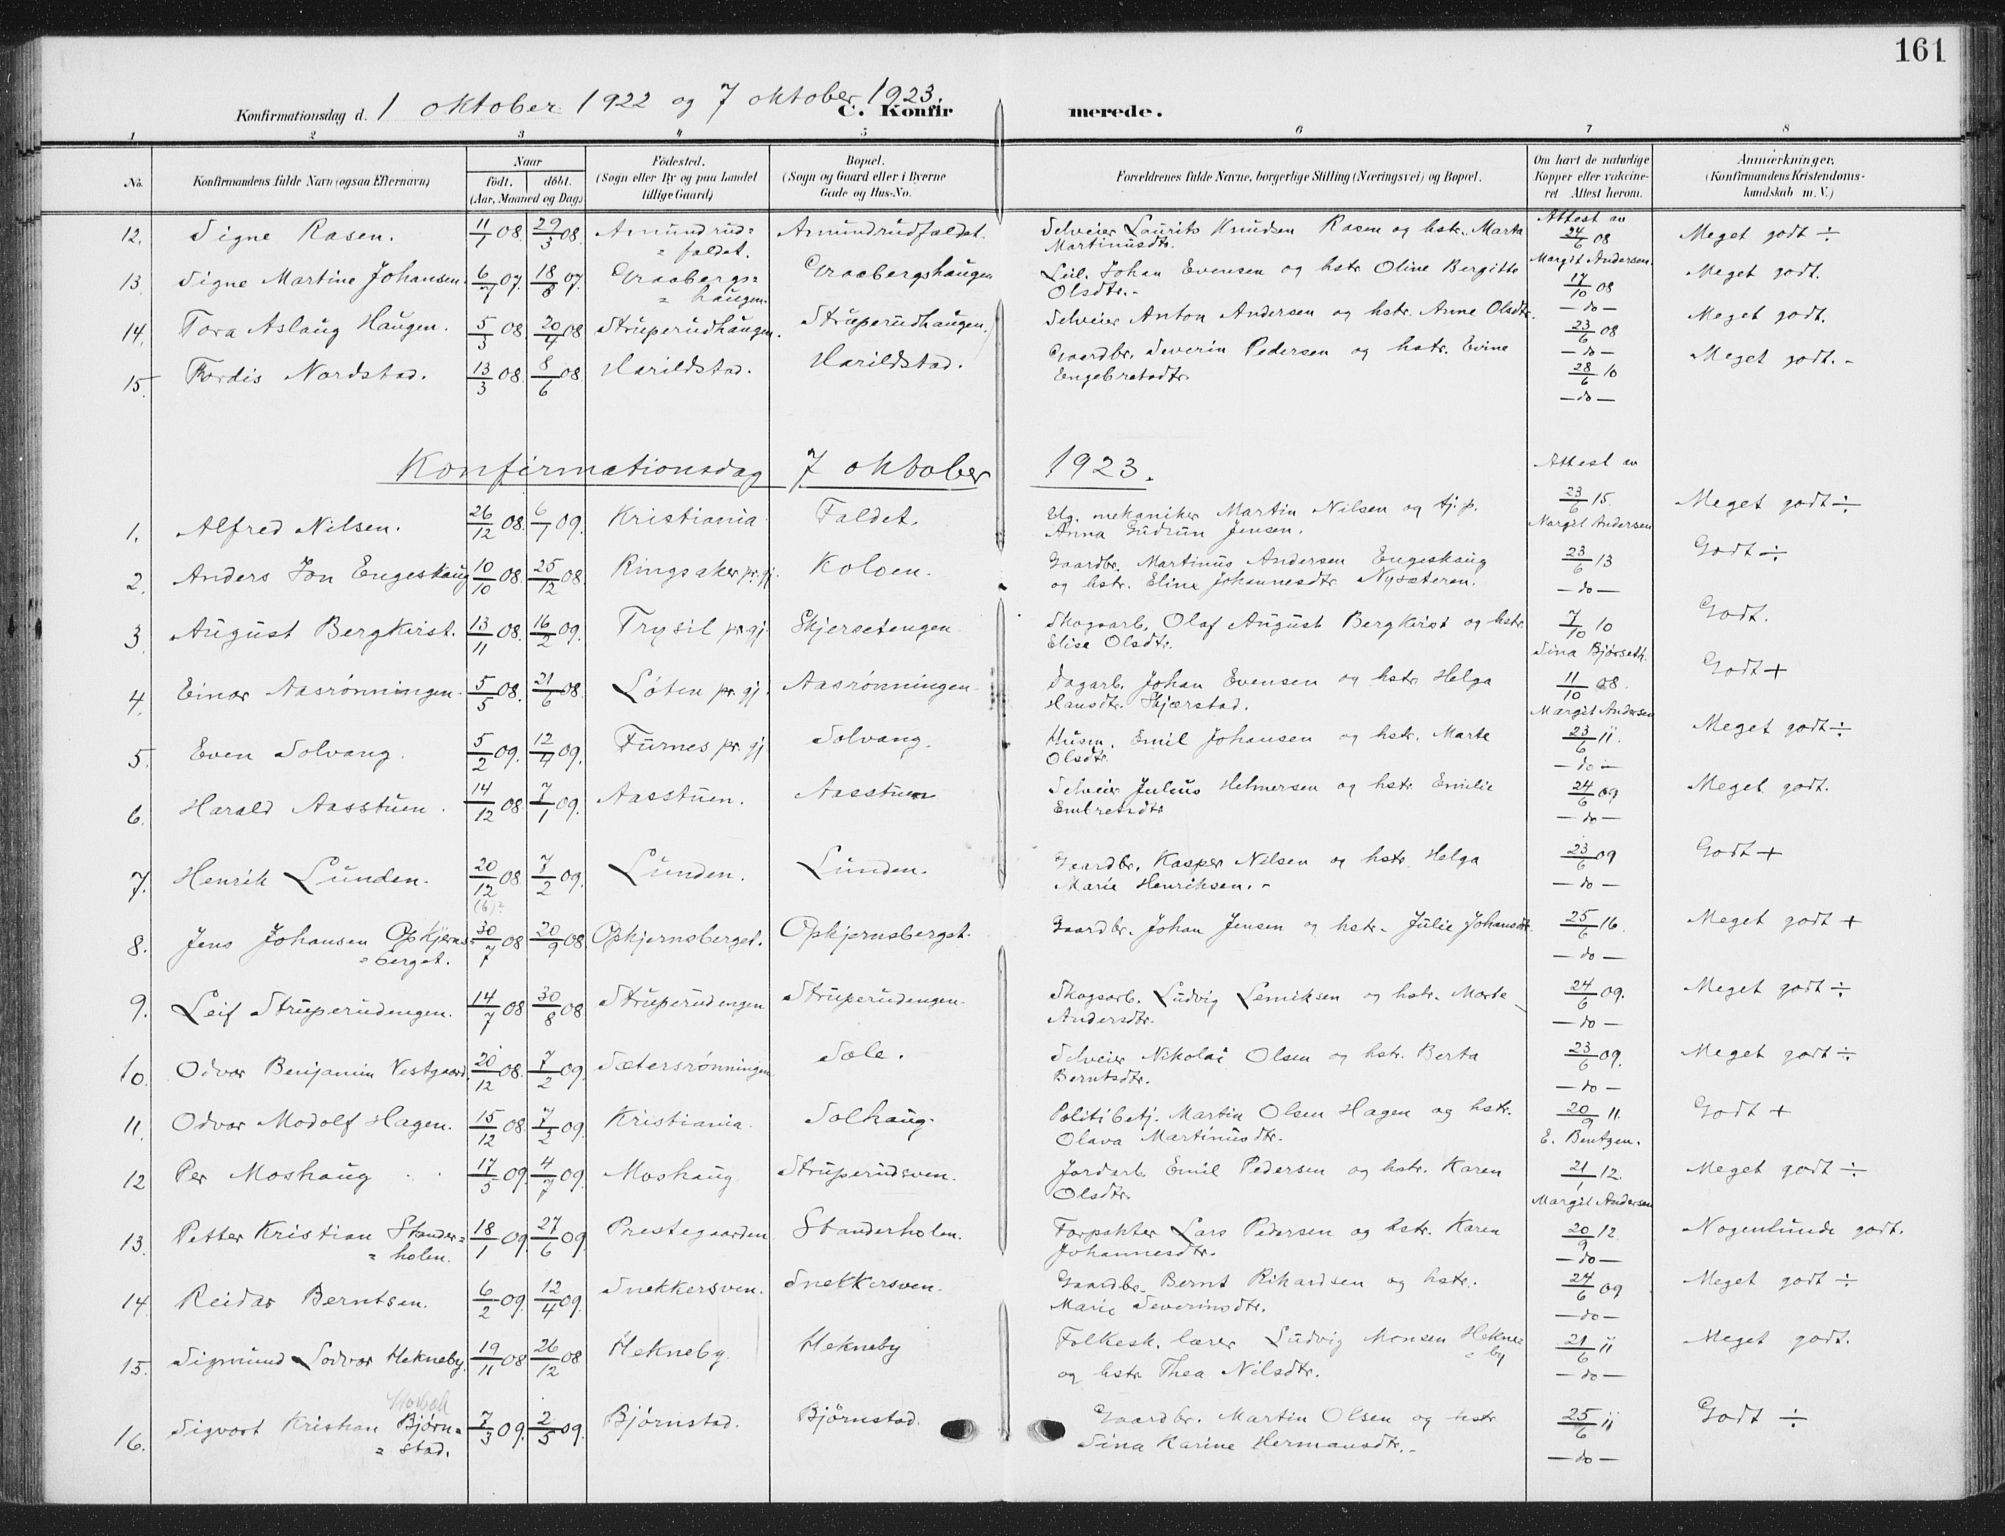 161
Konfirmationsdag d. 1 oktober 1922 og 7 oktober 1923. C. Konfir merede.
1 2 3 4 5 6 7 8
No. Konfirmandens fulde Navn (ogsaa Efternavn)
Naar født. døbt. (Aar, Maaned og Dag)
Födested. (Sogn eller By og paa Landet tillige Gaard)
Bopæl. (Sogn og Gaard eller i Byerne Gade og Hus-No.
Forældrenes fulde Navne, borgerlige Stilling (Næringsvei) og Bopæl.
Om havt de naturlige Kopper eller vakcineret Attest herom.
Anmærkninger. (Konfirmandens Kristendomskundskab m. V.)
12. Signe Rasen. 11/1 08. 29/3 08. Amundrud= = faldet. Amundrudfaldet. Selveier Laurits Knudsen Rasen og hstr. Marta Martinusdtr. Attest av 24/6 08 Margit Andersen. Meget godt ÷
13. Signe Martine Johansen. 6/7 07. 18/8 07. Graabergs= = haugen. Graabergshaugen Leil. Johan Evensen og hstr Oline Bergitte Olsdtr.- 17/10 08 - do - Meget godt.
14. Tora Aslaug Haugen. 5/3 08. 20/4 08 Struperudhaugen. Struperudhaugen. Selveier Anton Andersen og hstr. Anne Olsdtr. 23/6 08 - do - Meget godt.
15 Tordis Nordstad. 13/3 08. 8/6 08. Harildstad. Harildstad. Gaardbr. Severin Pedersen og hstr. Evine Engebretsdtr. 28/6 10 - do - Meget godt.-
Konfirmationsdag 7 oktober 1923.
1. Alfred Nilsen. 26/12 08. 6/1 09. Kristiania Faldet. Ug. mekaniker Martin Nilsen og tj.p. Anna Gudrun Jensen. Attest av 23/6 15 Margit Andersen Meget godt ÷
2. Anders Jon Engeskaug 10/10 08. 25/12 08. Ringsaker pr.gj. Koloen. Gaardbr. Martinus Andersen Engeskaug og hstr. Eline Johannesdtr Nysæteren. 23/6 13 - do - Godt ÷
3. August Bergkvist. 13/11 08. 16/2 09. Trysil pr.gj. Skjersetengen. Skogsarb. Olaf August Bergkvist og hstr. Elise Olsdtr. 7/10 10 Sina Bjørseth. Godt.
4. Einar Aasrønningen. 5/5 08. 21/6 08. Løten pr.gj. Aasrønningen Dagarb. Johan Evensen og hstr Helga Hansdtr. Skjærstad. 11/10 08. Margit Andersen Godt +
5. Even Solvang. 5/2 09. 12/4 09. Furnes pr.gj Solvang. Husm. Emil Johansen og hstr. Marte Olsdtr. 23/6 11. - do - Meget godt ÷
6. Harald Aasstuen. 14/12 08. 7/1 09. Aasstuen. Aasstuen Selveier Julius Helmersen og hstr Emilie Embretsdtr 24/6 09 - do - Meget godt.
7. Henrik Lunden. 20/12 08. (6)? 7/2 09. Lunden. Lunden. Gaardbr. Kasper Nilsen og hstr. Helga Marie Henriksen.- 23/6 09 - do - Godt +
8. Jens Johansen Opkjerns= = berget. 30/7 08. 20/9 08. Opkjernsberget. Opkjernsberget. Gaardbr. Johan Jensen og hstr. Julie Johansdtr 25/6 16. - do - Meget godt +
9. Leif Struperudengen. 14/7 08. 30/8 08. Struperudengen Struperudengen. Skogsarb. Ludvig Lemiksen og hstr. Marte Andersdtr. 24/6 09. - do - Meget godt ÷
10. Odvar Benjamin Vestgaard. 20/12 08. 7/2 09. Sætersrønningen Sole. Selveier Nikolai Olsen og hstr. Berta Berntsdtr. 23/6 09. - do - Meget godt ÷
11. Odvar Modolf Hagen. 15/12 08. 7/2 09. Kristiania. Solhaug. Politibetj. Martin Olsen Hagen og hstr. Olava Martinusdtr. 20/9 11. E. Bentzen. Godt +
12 Per Moshaug 17/5 09. 4/7 09. Moshaug Struperudsven. Jordarb. Emil Pedersen og hstr. Karen Olsdtr. 21/1 12. Margit Andersen Meget godt ÷
13. Petter Kristian Stander= = holen. 18/1 09. 27/6 09. Prestegaarden Standerholen. Forpakter Lars Pedersen og hstr. Karen Johannesdtr. 20/9 12. - do - Nogenlunde godt.
14. Reidar Berntsen. 6/2 09. 12/4 09. Snekkersven. Snekkersven. Gaardbr. Bernt Rikardsen og hstr. Marie Severinsdtr. 24/6 09 - do - Meget godt ÷
15. Sigmund Lodvar Hekneby. 19/11 08. 26/12 08 Hekneby. Hekneby Folkesk. lærer Ludvig Monsen Hekne= = by og hstr Thea Nilsdtr. 21/6 11 - do - Meget godt.
16. Sigvart Kristian Bjørn= = stad. 7/3 09. 2/5 09. Bjørnstad. Bjørnstad. Gaardbr. Martin Olsen og hstr Sina Karine Hermansdtr.- 25/6 11 - do - Godt ÷